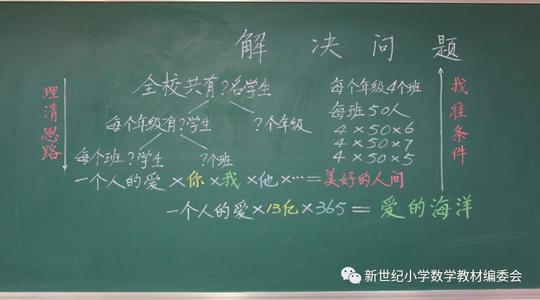 解决问题
理清思路
全校共有?名学生
每个年级有?学生 ?个年级
每个班?学生 ?个班
每个年级4个班
每班50人
4×50×6
4×50×7
4×50×5
找准条件
一个人的爱×你×我×他×…=美好的人间
一个人的爱×13亿×365=爱的海洋
新世纪小学数学教材编委会